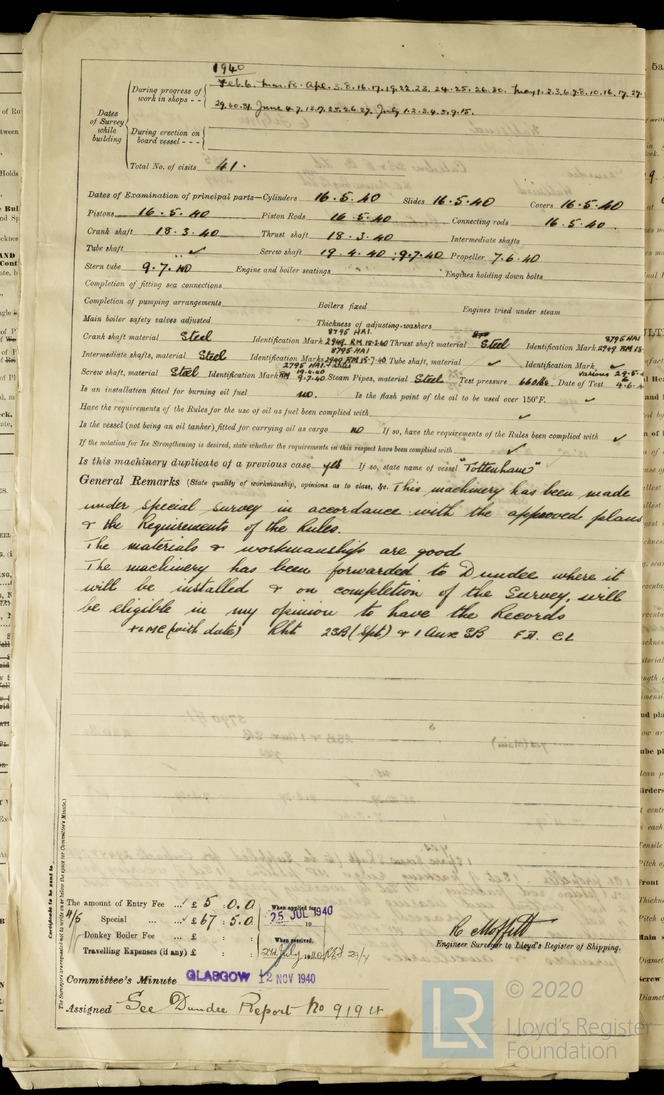 1940
Dates of Survey while building
During progress of work in shops - - Feb. 6. Mar. 18. Apr. 3. 8. 16. 17. 19. 22. 23. 24. 25. 26. 30. May 1. 2. 3. 6. 7. 8. 10. 16. 17. 27.
29. 30. 31. June 4. 7. 13. 17. 25. 26. 27. July 1. 2. 3. 4. 5. 9. 15.
During erection on board vessel - - -
Total No. of visits 41.
Dates of Examination of principal parts—Cylinders 16.5.40 Slides 16.5.40 Covers 16.5.40
Pistons 16.5.40 Piston Rods 16.5.40 Connecting rods 16.5.40.
Crank shaft 18.3.40 Thrust shaft 18.3.40 Intermediate shafts
Tube shaft ✓ Screw shaft 19.4.40 : 9.7.40 Propeller 7.6.40
Stern tube 9.7.40 Engine and boiler seatings Engines holding down bolts
Completion of fitting sea connections
Completion of pumping arrangements Boilers fixed Engines tried under steam
Main boiler safety valves adjusted Thickness of adjusting washers
Crank shaft material Steel Identification Mark 8795 HAI. 2949 RM 18.3.40 Thrust shaft material Steel Identification Mark 8795 HAI 2949 RM 18.
Intermediate shafts, material Steel Identification Marks 8795 HAI 2949 RM 15.7.40 Tube shaft, material ✓ Identification Mark ✓
Screw shaft, material Steel Identification Mark 2795 HAI RM 19.4.40 9.7.40 Steam Pipes, material Steel Test pressure 660 lbs. Date of Test various 29.5. & 4.6.4
Is an installation fitted for burning oil fuel no. Is the flash point of the oil to be used over 150°F. ✓
Have the requirements of the Rules for the use of oil as fuel been complied with ✓
Is the vessel (not being an oil tanker) fitted for carrying oil as cargo no If so, have the requirements of the Rules been complied with ✓
If the notation for Ice Strengthening is desired, state whether the requirements in this respect have been complied with ✓
Is this machinery duplicate of a previous case yes If so, state name of vessel "Tottenham"
General Remarks (State quality of workmanship, opinions as to class, &c. This machinery has been made
under special survey in accordance with the approved plans
& the Requirements of the Rules.
The materials & workmanship are good
The machinery has been forwarded to Dundee where it
will be installed & on completion of the Survey, will
be eligible in my opinion to have the Records
+LMC (with date) 2SB (Spt) & 1 Aux SB F.D. CL
Certificate to be sent to
(The Surveyors are requested not to write on or below the space for Committee's Minute.)
The amount of Entry Fee ... £ 5 : 0.0
4/5 Special ... £ 67 : 5.0
Donkey Boiler Fee ... £ :
Travelling Expenses (if any) £ :
When applied for,
25 JUL 1940
19
When received,
R. Moffitt
Engineer Surveyor to Lloyd's Register of Shipping.
Committee's Minute GLASGOW 12 NOV 1940
Assigned See Dundee Report No 9194
LR © 2020
Lloyd's Register
Foundation